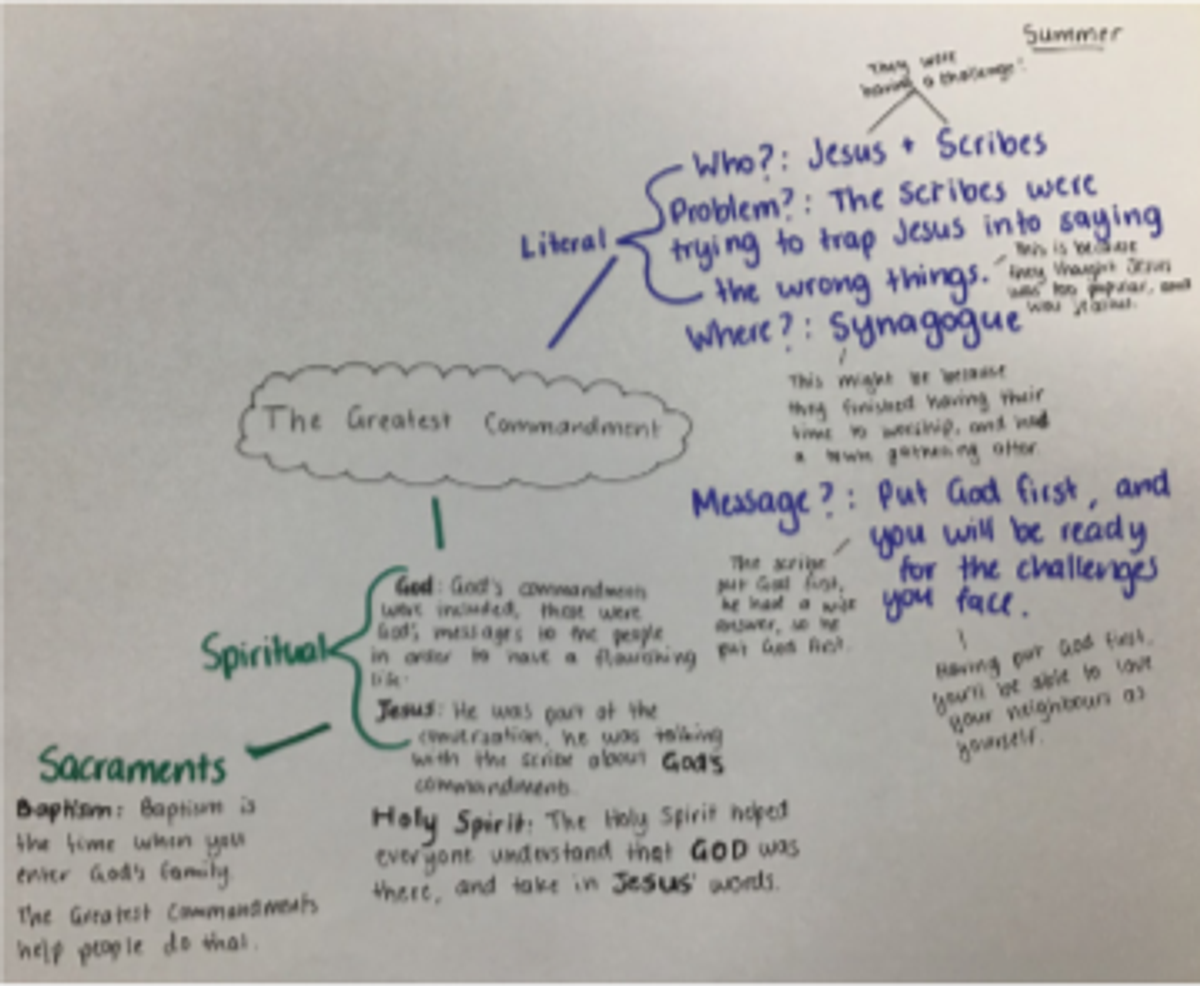 Summer
They were
having a challenge!
Who?: Jesus + Scribes
Literal
Problem?: The scribes were
trying to trap Jesus into saying
the wrong things.
This is because
they thought Jesus
was too popular, and
was jealous.
Where?: Synagogue
This might be because
they finished having their
time to worship, and had
a town gathering after.
The Greatest Commandment
Message?: Put God first, and
you will be ready
for the challenges
you face.
The scribe
put God first,
he had a wise
answer, so he
put God first.
Having put God first,
you'll be able to love
your neighbours as
yourself.
Spiritual
God: God's commandments
were included, those were
God's messages to the people
in order to have a flourishing
life.
Jesus: He was part of the
conversation, he was talking
with the scribe about God's
commandments.
Holy Spirit: The Holy Spirit helped
everyone understand that GOD was
there, and take in Jesus' words.
Sacraments
Baptism: Baptism is
the time when you
enter God's family.
The Greatest Commandments
help people do that.